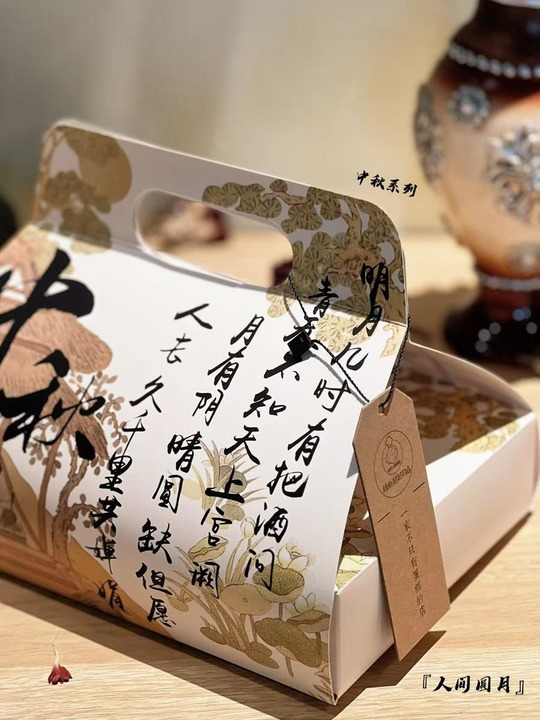 中秋系列
中秋
明月几时有把酒问
青不知天上宫阙
月有阴晴圓缺但愿
人去久千里共婵娟
一家不只有蛋糕的店
『人间圆月』